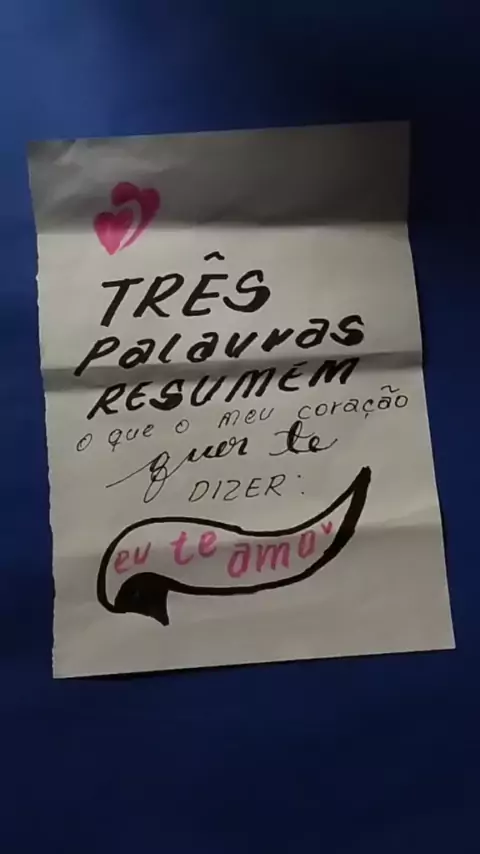 TRÊS
PalaVras
RESUMÉM
O QUE O MEU CORAÇÃO
quer te
DIZER:
eu te amo